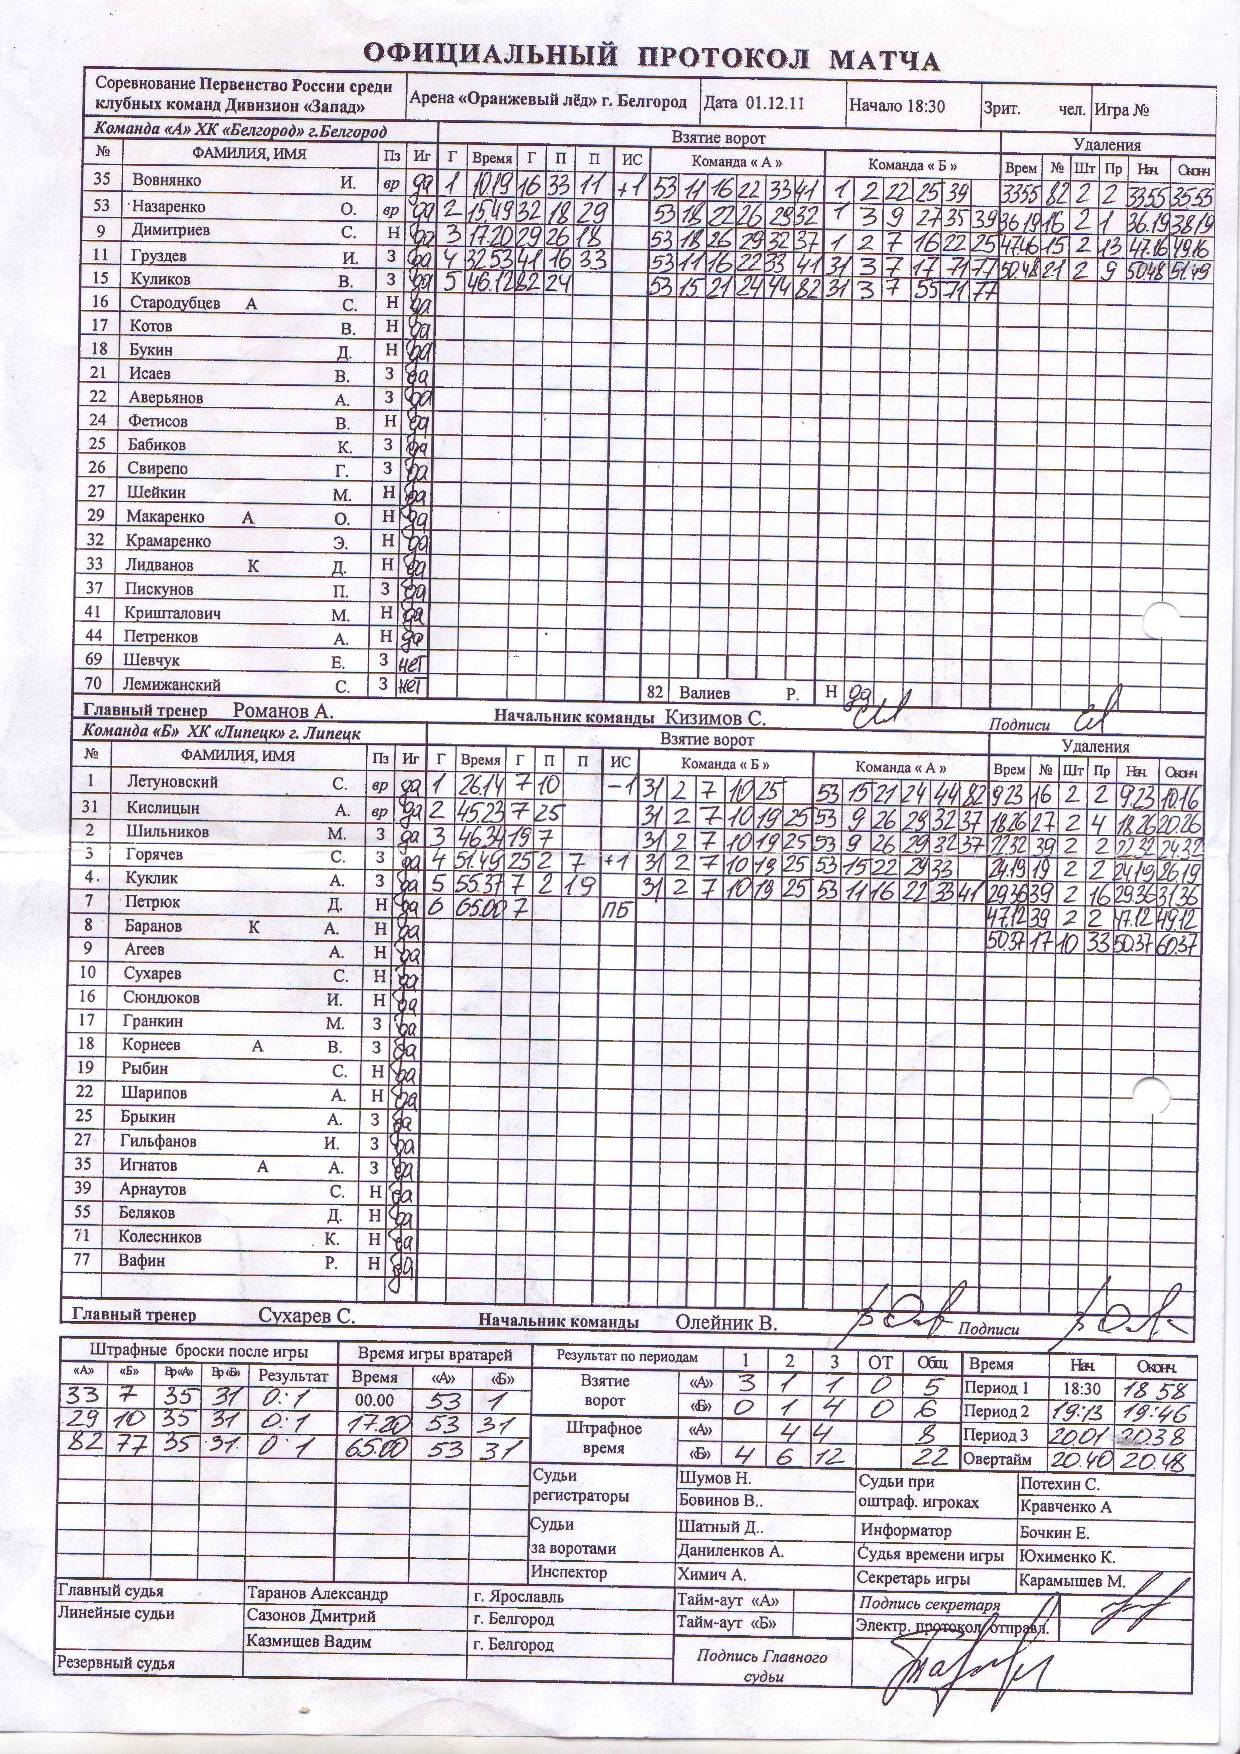 ОФИЦИАЛЬНЫЙ ПРОТОКОЛ МАТЧА
Соревнование Первенство России среди клубных команд Дивизион «Запад» Арена «Оранжевый лёд» г. Белгород Дата 01.12.11 Начало 18:30 Зрит. чел. Игра №
Команда «А» ХК «Белгород» г.Белгород Взятие ворот Удаления
№ ФАМИЛИЯ, ИМЯ Пз Иг Г Время Г П П ИС Команда « А » Команда « Б » Врем № Шт Пр Нач. Оконч
35 Вовнянко И. вр да 1 10.19 16 33 11 +1 53 11 16 22 33 41 1 2 22 25 39 33.55 82 2 2 33.55 35.55
53 Назаренко О. вр да 2 15.49 32 18 29 53 18 22 26 29 32 1 3 9 27 35 39 36.19 16 2 1 36.19 38.19
9 Димитриев С. Н да 3 17.20 29 26 18 53 18 26 29 32 37 1 2 7 16 22 25 47.16 15 2 13 47.16 49.16
11 Груздев И. З да 4 32.53 41 16 33 53 11 16 22 33 41 31 3 7 17 71 77 50.48 21 2 9 50.48 51.49
15 Куликов В. З да 5 46.12 82 24 53 15 21 24 44 82 31 3 7 55 71 77
16 Стародубцев А С. Н да
17 Котов В. Н да
18 Букин Д. Н да
21 Исаев В. З да
22 Аверьянов А. З да
24 Фетисов В. Н да
25 Бабиков К. З да
26 Свирепо Г. З да
27 Шейкин М. Н да
29 Макаренко А О. Н да
32 Крамаренко Э. Н да
33 Лидванов К Д. Н да
37 Пискунов П. З да
41 Кришталович М. Н да
44 Петренков А. Н да
69 Шевчук Е. З нет
70 Лемижанский С. З нет 82 Валиев Р. Н да
Главный тренер Романов А. Начальник команды Кизимов С. Подписи
Команда «Б» ХК «Липецк» г. Липецк Взятие ворот Удаления
№ ФАМИЛИЯ, ИМЯ Пз Иг Г Время Г П П ИС Команда « Б » Команда « А » Врем № Шт Пр Нач. Оконч
1 Летуновский С. вр да 1 26.14 7 10 -1 31 2 7 10 25 53 15 21 24 44 82 9.23 16 2 2 9.23 10.16
31 Кислицын А. вр да 2 45.23 7 25 31 2 7 10 19 25 53 9 26 29 32 37 18.26 27 2 4 18.26 20.26
2 Шильников М. З да 3 46.34 19 7 31 2 7 10 19 25 53 9 26 29 32 37 22.32 39 2 2 22.32 24.32
3 Горячев С. З да 4 51.49 25 2 7 +1 31 2 7 10 19 25 53 15 22 29 33 24.19 19 2 2 24.19 26.19
4. Куклик А. З да 5 55.37 7 2 19 31 2 7 10 19 25 53 11 16 22 33 41 29.36 39 2 16 29.36 31.36
7 Петрюк Д. Н да 6 65.00 7 ПБ 47.12 39 2 2 47.12 49.12
8 Баранов К А. Н да 50.37 17 10 33 50.37 60.37
9 Агеев А. Н да
10 Сухарев С. Н да
16 Сюндюков И. Н да
17 Гранкин М. З да
18 Корнеев А В. З да
19 Рыбин С. Н да
22 Шарипов А. Н да
25 Брыкин А. З да
27 Гильфанов И. З да
35 Игнатов А А. З да
39 Арнаутов С. Н да
55 Беляков Д. Н да
71 Колесников К. Н да
77 Вафин Р. Н да
Главный тренер Сухарев С. Начальник команды Олейник В. Подписи
Штрафные броски после игры Время игры вратарей Результат по периодам 1 2 3 ОТ Общ Время Нач. Оконч.
«А» «Б» Вр«А» Вр«Б» Результат Время «А» «Б» Взятие ворот «А» 3 1 1 0 5 Период 1 18:30 18 58
33 7 35 31 0:1 00.00 53 1 «Б» 0 1 4 0 6 Период 2 19:13 19:46
29 10 35 31 0:1 17.20 53 31 Штрафное время «А» 4 4 8 Период 3 20.01 20.38
82 77 35 31. 0 1 65.00 53 31 «Б» 4 6 12 22 Овертайм 20.40 20.48
Судьи регистраторы Шумов Н. Судьи при оштраф. игроках Потехин С.
Бовинов В.. Кравченко А
Судьи за воротами Шатный Д.. Информатор Бочкин Е.
Даниленков А. Судья времени игры Юхименко К.
Инспектор Химич А. Секретарь игры Карамышев М.
Главный судья Таранов Александр г. Ярославль Тайм-аут «А» Подпись секретаря
Линейные судьи Сазонов Дмитрий г. Белгород Тайм-аут «Б» Электр. протокол отправл.
Казмищев Вадим г. Белгород Подпись Главного судьи
Резервный судья